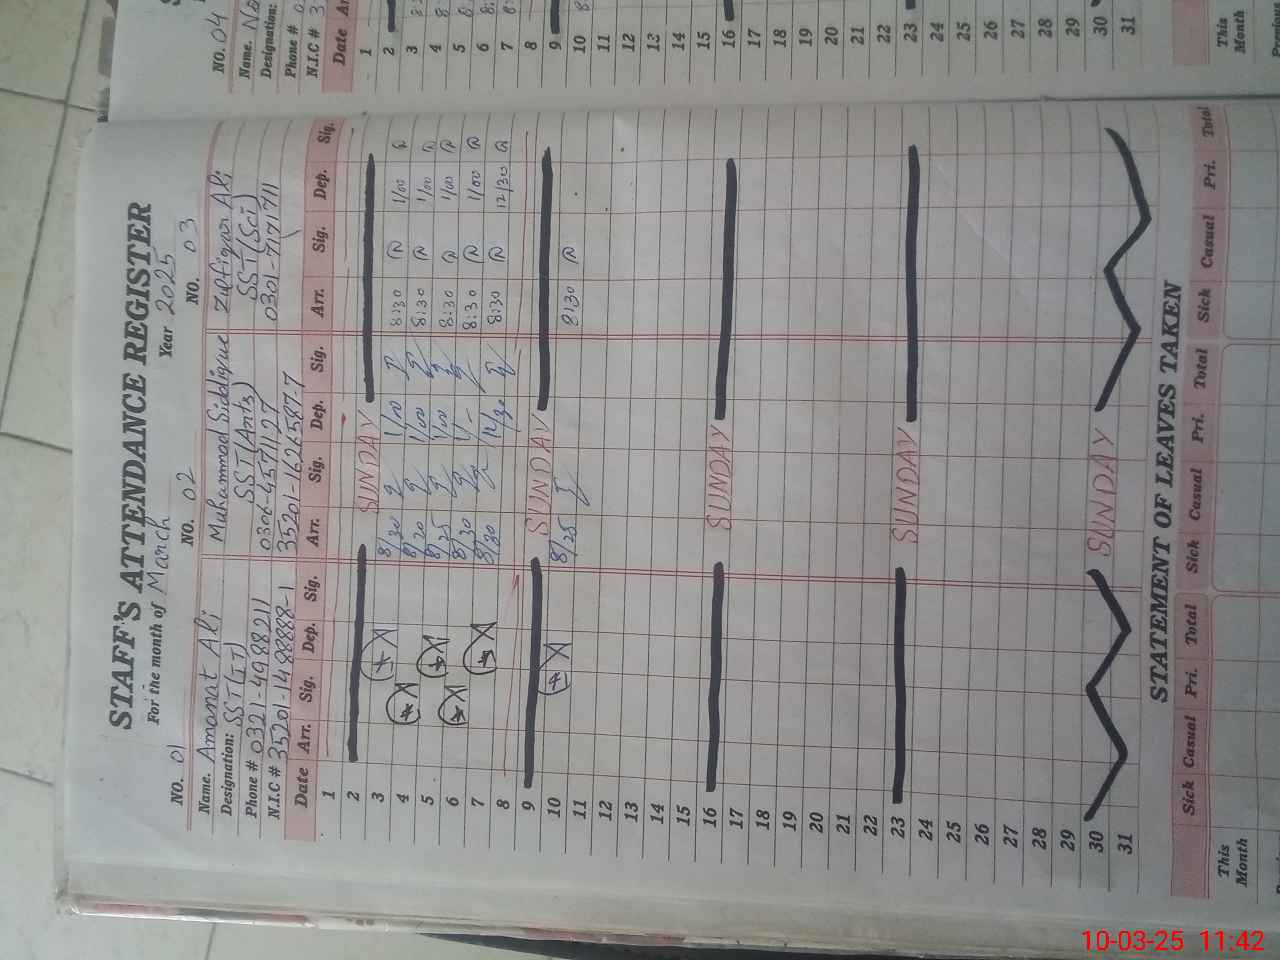 STAFF'S ATTENDANCE REGISTER
For the month of March Year 2025
NO. 01 NO. 02 NO. 03
Name. Amanat Ali Muhammad Siddique Zulfiqar Ali
Designation: SST(IT) SST(Arts) SST(Sci)
Phone # 0321-4988211 0306-4571127 0301-7171711
N.I.C # 35201-1488888-1 35201-1626587-7
Date Arr. Sig. Dep. Sig. Arr. Sig. Dep. Sig. Arr. Sig. Dep. Sig.
1
2 SUNDAY
3 8/30 1/00 8:30 1/00
4 8/20 1/00 8:30 1/00
5 8/25 1/00 8:30 1/00
6 8/30 1/- 8:30 1/00
7 8/30 12/30 8:30 12/30
8
9 SUNDAY
10 8/25 8:30
11
12
13
14
15
16 SUNDAY
17
18
19
20
21
22
23 SUNDAY
24
25
26
27
28
29
30 SUNDAY
31
STATEMENT OF LEAVES TAKEN
Sick Casual Pri. Total Sick Casual Pri. Total Sick Casual Pri. Total
This
Month
NO. 04
Name.
Designation:
Phone #
N.I.C #
Date
1
2
3
4
5
6
7
8
9
10
11
12
13
14
15
16
17
18
19
20
21
22
23
24
25
26
27
28
29
30
31
This
Month
10-03-25 11:42